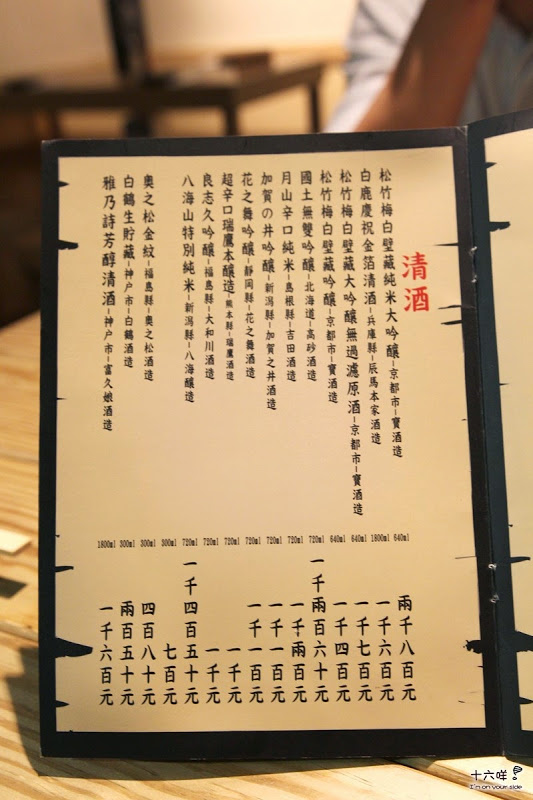 清酒
松竹梅白壁藏純米大吟釀–京都市–寶酒造 640ml 兩千八百元
白鹿慶祝金箔清酒–兵庫縣–辰馬本家酒造 1800ml 一千六百元
松竹梅白壁藏大吟釀無過濾原酒–京都市–寶酒造 640ml 一千七百元
松竹梅白壁藏吟釀–京都市–寶酒造 640ml 一千四百元
國士無雙吟釀–北海道–高砂酒造 720ml 一千兩百六十元
月山辛口純米–島根縣–吉田酒造 720ml 一千兩百元
加賀の井吟釀–新潟縣–加賀之井酒造 720ml 一千一百元
花之舞吟釀–靜岡縣–花之舞酒造 720ml 一千一百元
超辛口瑞鷹本釀造–熊本縣–瑞鷹酒造 720ml 一千元
良志久吟釀–福島縣–大和川酒造 720ml 一千元
八海山特別純米–新潟縣–八海釀造 720ml 一千四百五十元
300ml 七百元
奧之松金紋–福島縣–奧之松酒造 300ml 四百八十元
白鶴生貯藏–神戶市–白鶴酒造 300ml 兩百五十元
雅乃詩芳醇清酒–神戶市–富久娘酒造 1800ml 一千六百元
十六咩
I'm on your side